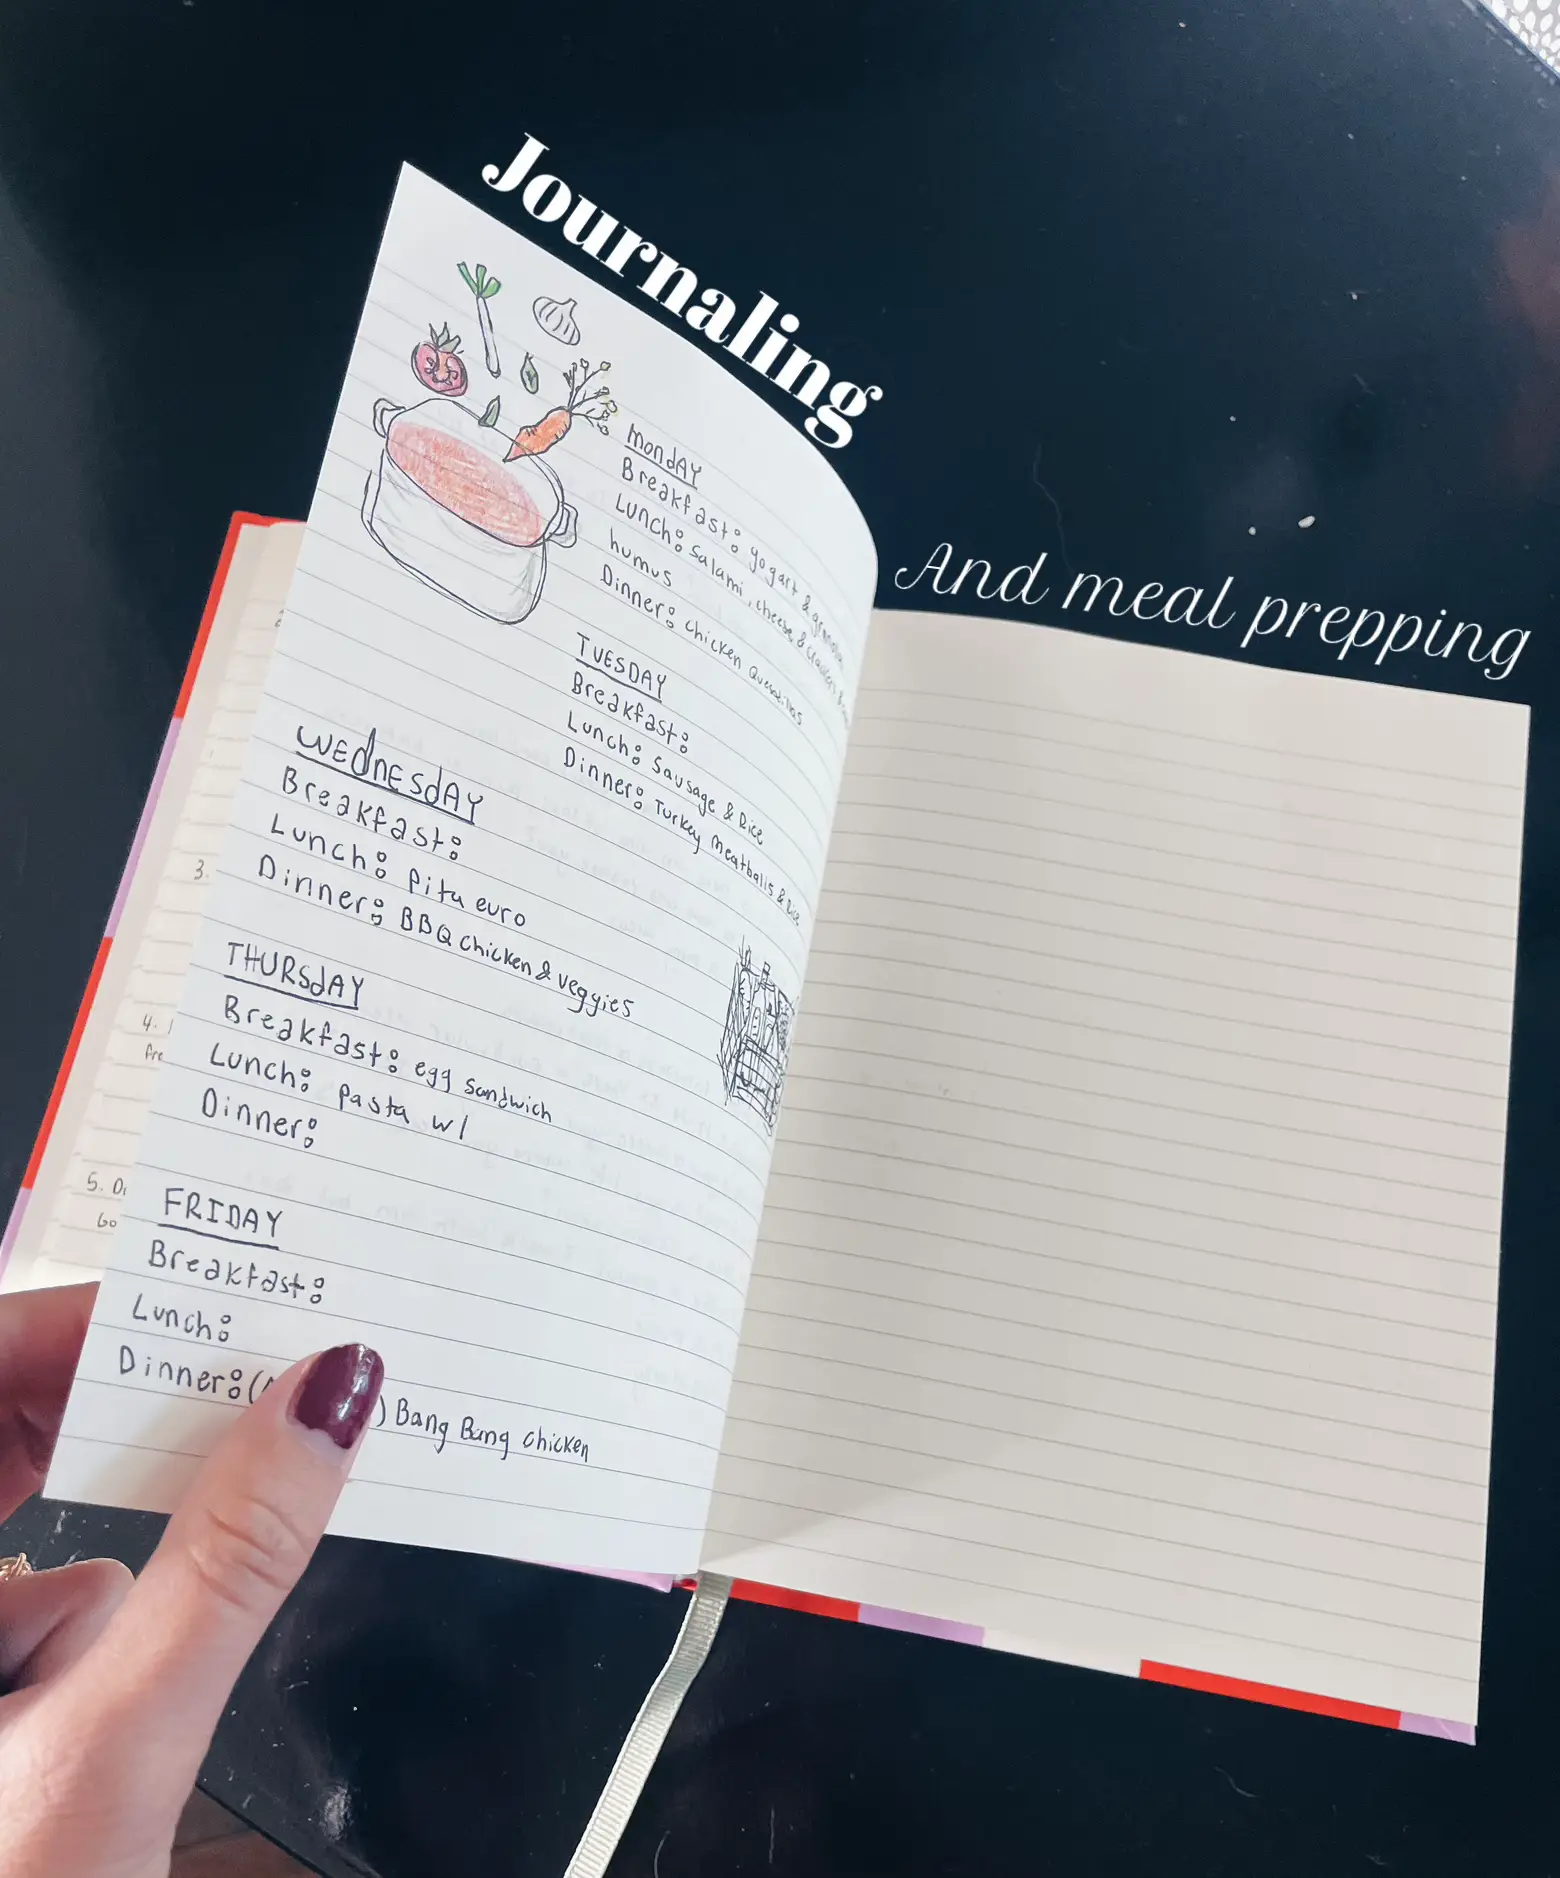 Journaling
And meal prepping
MondAY
Breakfast: yogart & granola
Lunch: Salami, cheese & crackers &
humus
Dinner: chicken Quesadillas
TUESDAY
Breakfast:
Lunch: Sausage & Rice
Dinner: Turkey Meatballs & Rice
WEdnESdAY
Breakfast:
Lunch: Pita euro
Dinner: BBQ chicken & veggies
THURSdAY
Breakfast: egg sandwich
Lunch: Pasta w/
Dinner:
FRIDAY
Breakfast:
Lunch:
Dinner: ( ) Bang Bang chicken
3.
4.
5.
Go